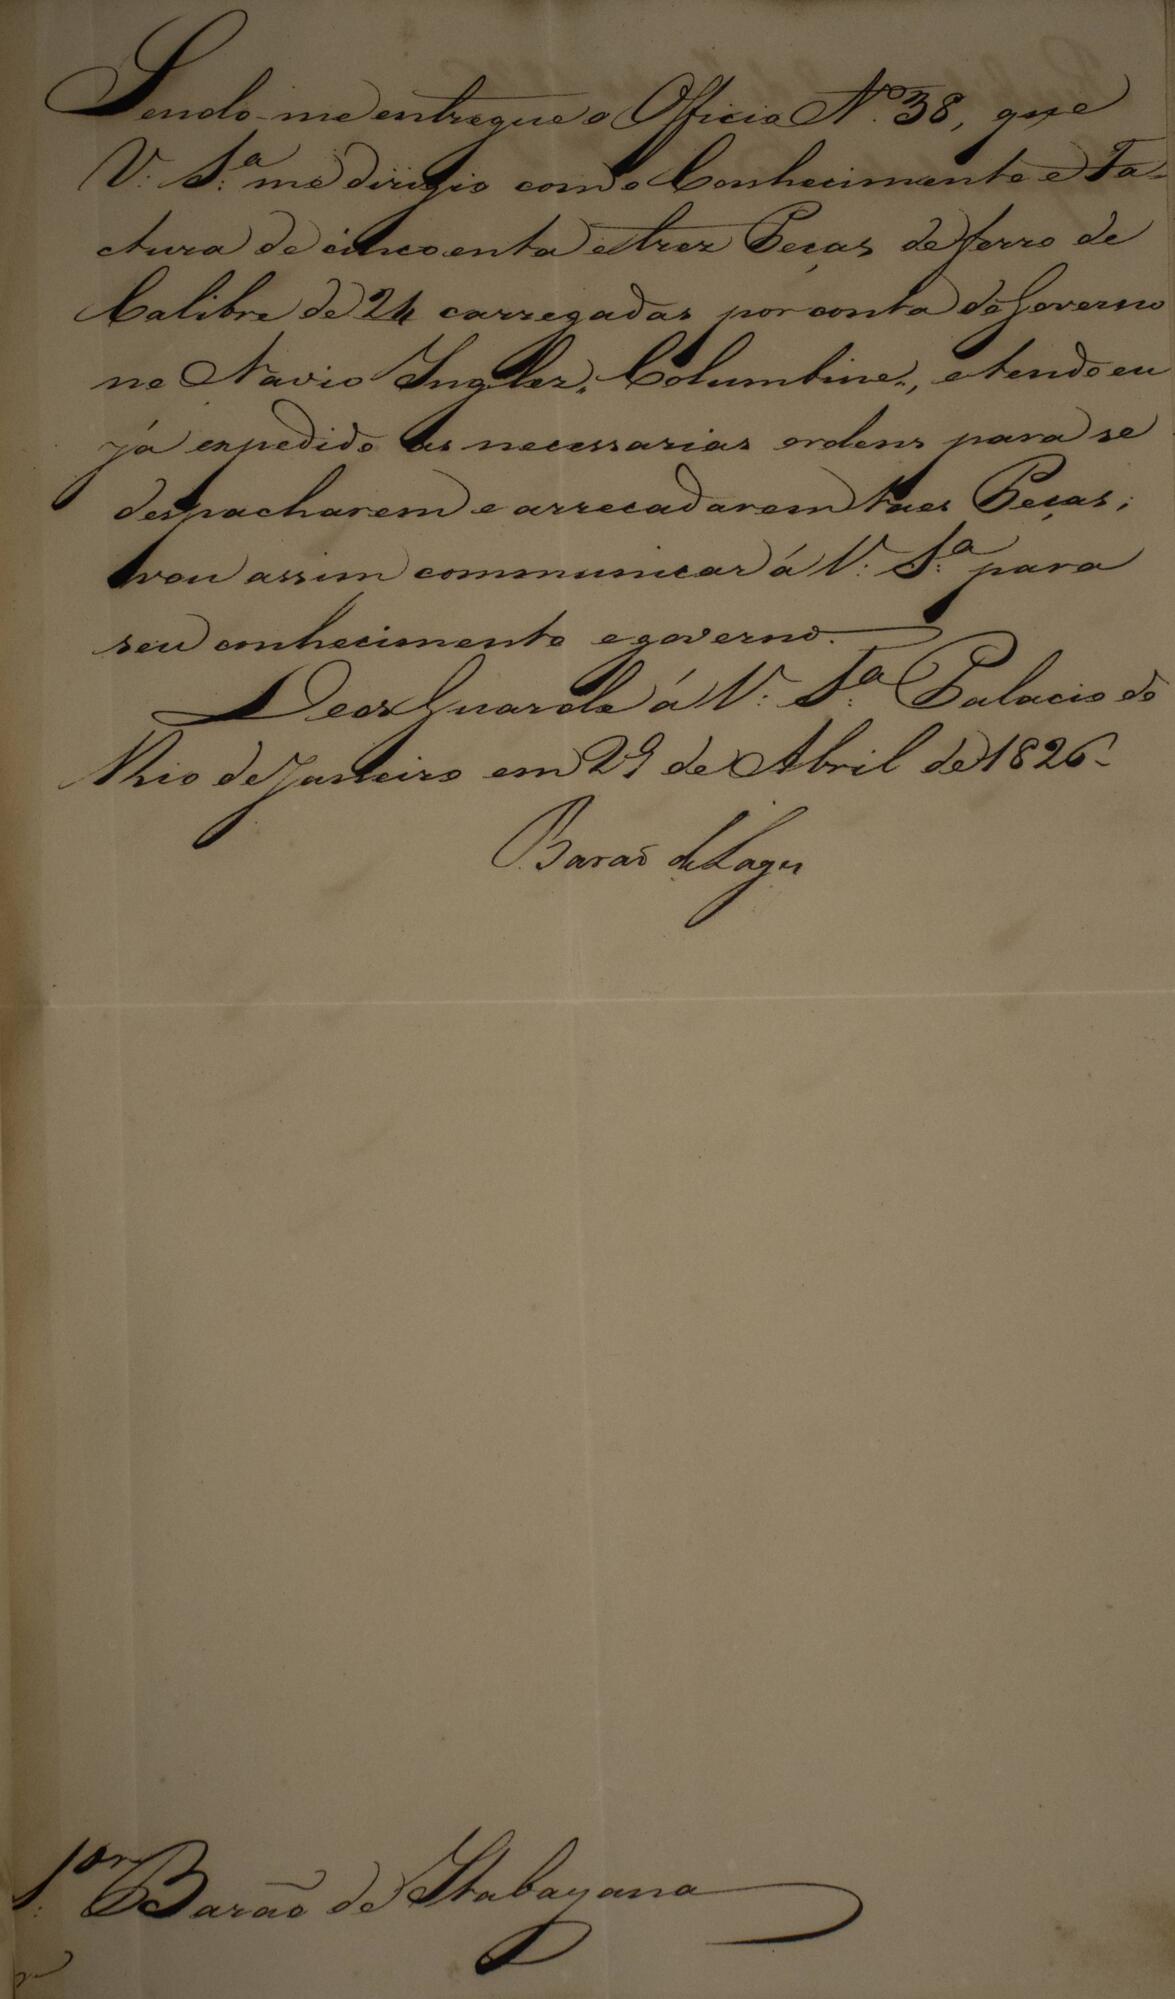 Sendo-me entregue o Officio N.º 38, que
V. S.ª me dirigio com o Conhecimento e Fa-
ctura de cincoenta e trez Peças de ferro de
Calibre de 24 carregadas por conta do Governo
no Navio Inglez „ Columbine „, e tendo eu
já expedido as necessarias ordens para se
despacharem e arrecadarem taes Peças;
vou assim communicar á V. S.ª para
seu conhecimento e governo.
Deos Guarde á V. S.ª Palacio do
Rio de Janeiro em 29 de Abril de 1826.
Barão de Lages
S.or Barão de Itabayana